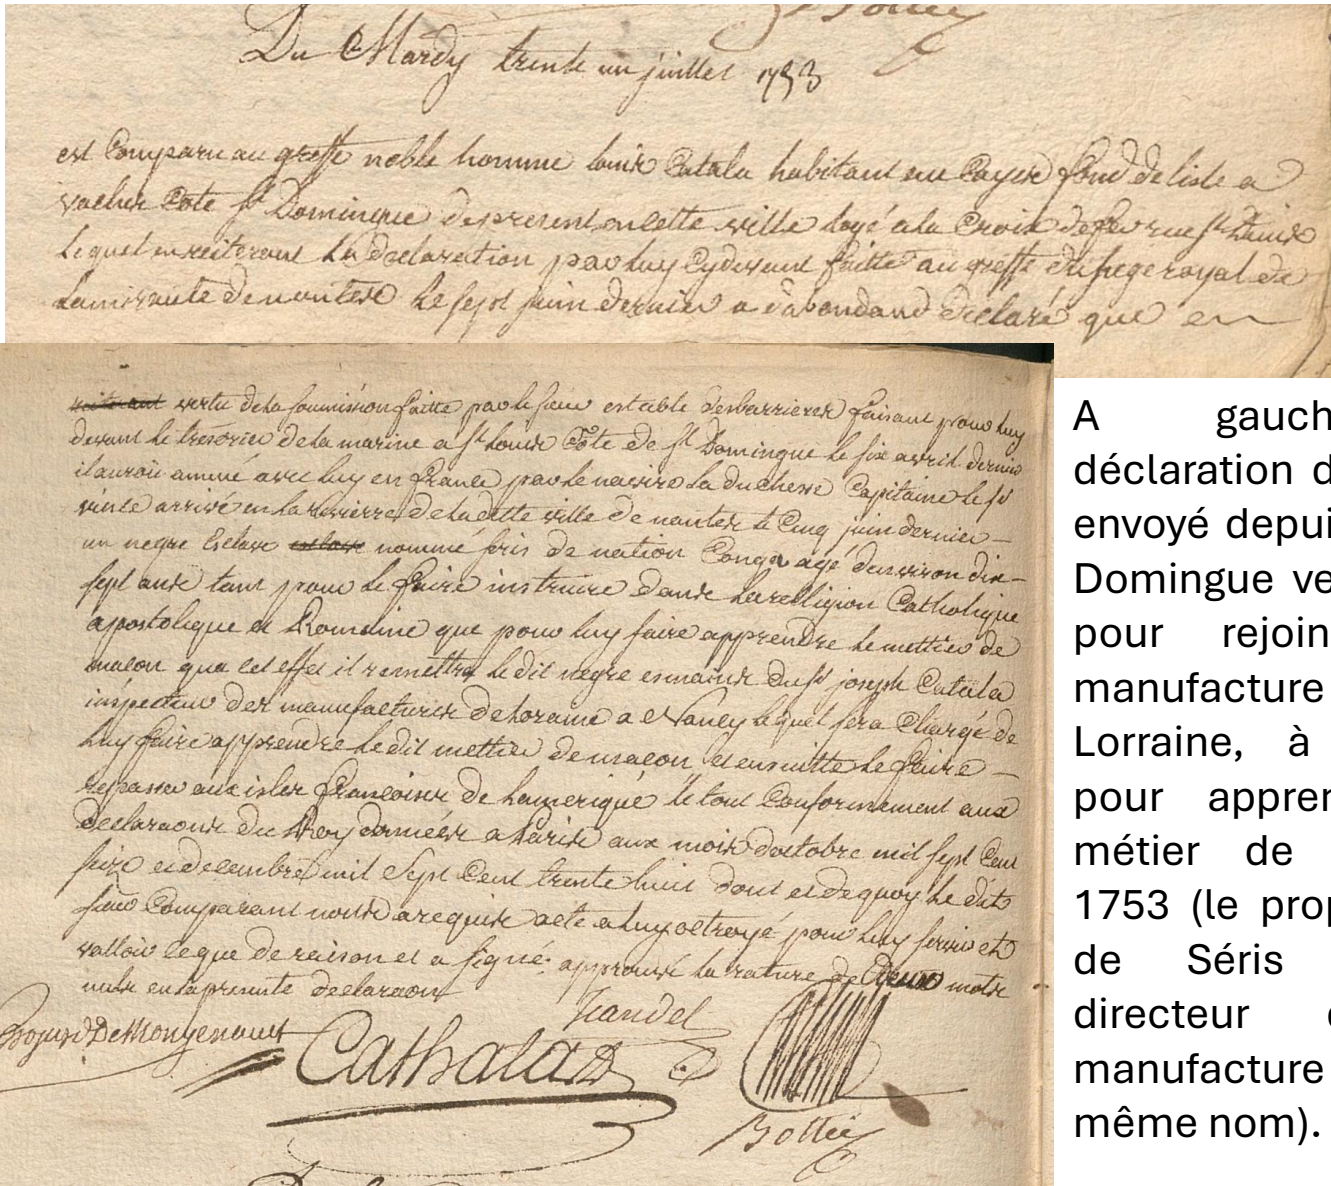 Du Mardy trente un juillet 1753
est Comparu au greffe noble homme louis Catala habitant aux Cayes fond de lisle a
vaches Cote St Domingue de present en cette ville logé a la Croix de fer rue St Louis
Lequel en reiterant La declaration par luy Cydevant faitte au greffe du siege royal de
Lamirauté de nantes Le sept juin dernier a dabondand declaré que en
reiterant vertu de la soumission faitte par le sieur estable desbarrieres faisant pour luy
devant le tresorier de la marine a St louis Cote de St Domingue le six avril dernier
il auroit amené avec luy en france par le navire La duchesse Capitaine le sr
arrivé en la riviere de la dette ville de nantes le Cinq juin dernier
un negre Esclave esclave nommé seris de nation Congo agé denviron dix
sept ans tant pour le faire instruire dans la religion Catholique
apostolique et Romaine que pour luy faire apprendre le mettier de
macon qua cet effet il remettra le dit negre es mains du sr joseph Catala
inspecteur des manufactures de loraine a Nancy lequel sera Chargé de
luy faire apprendre le dit mettier de macon et ensuitte le faire
repasser aux isles francoises de lamerique le tout Conformement aux
declaraons du Roy données a Paris aux mois doctobre mil sept Cent
seize et decembre mil Sept Cent trente huit dont et de quoy le dits
sieur Comparant nous a requis acte a luy octroyé pour luy servir et
valloir ce que de raison et a signé: approuvé la rature de deux mots
nuls en la presente declaraon
Cathala
Bottey
A gauch
déclaration d
envoyé depui
Domingue ve
pour rejoin
manufacture
Lorraine, à
pour appren
métier de
1753 (le prop
de Séris
directeur
manufacture
même nom).